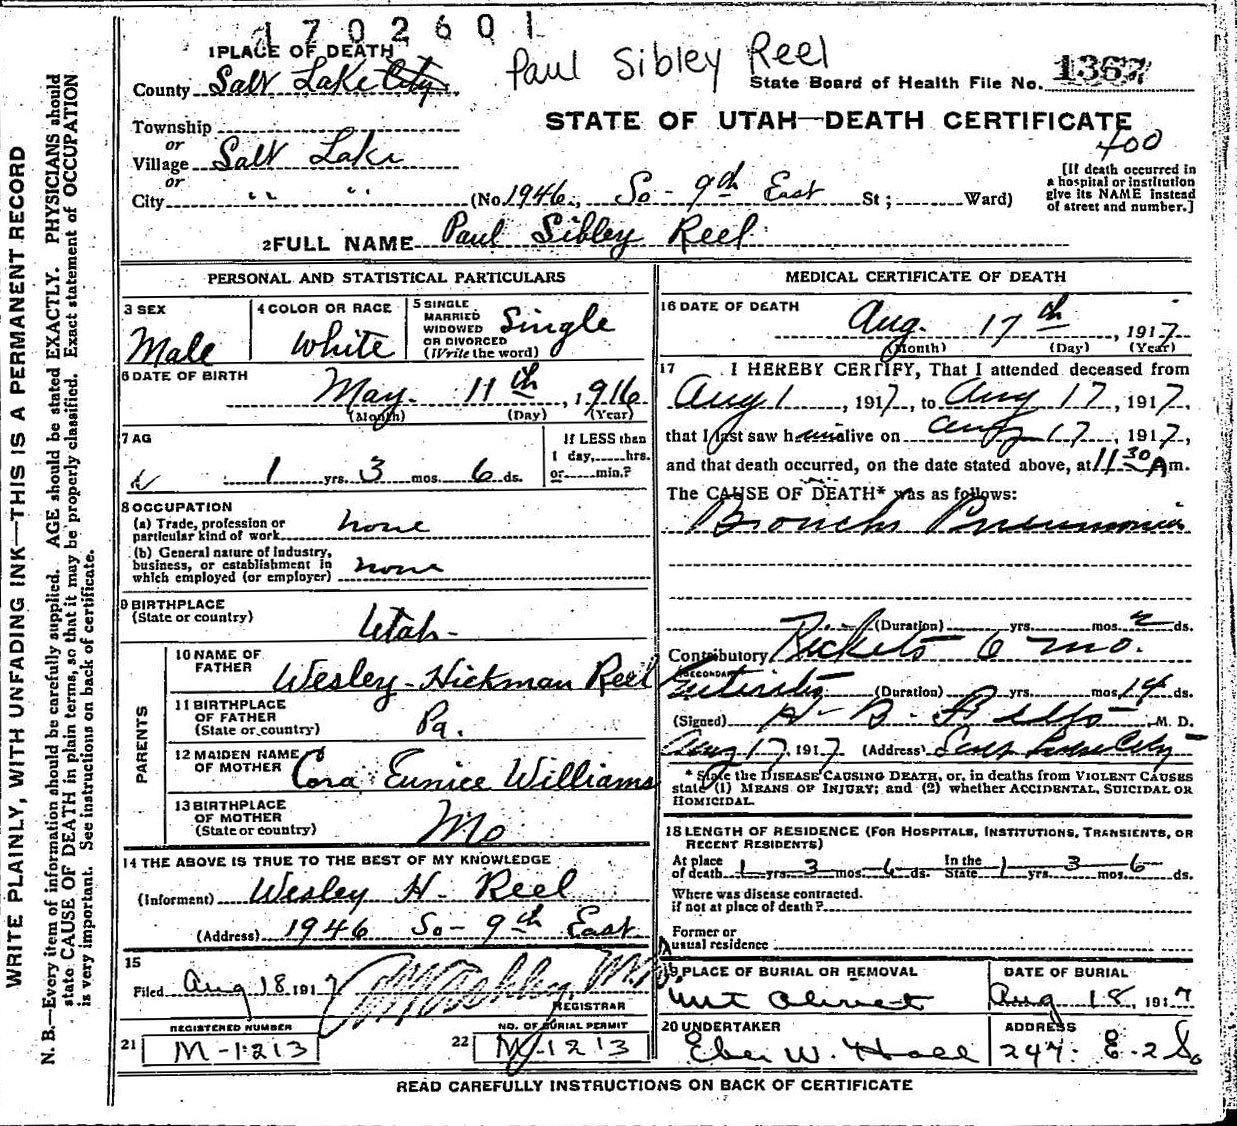 1702601
Paul Sibley Reel
1 PLACE OF DEATH
County Salt Lake City
State Board of Health File No. 1367
STATE OF UTAH—DEATH CERTIFICATE
400
Township
or
Village Salt Lake
or
City " " (No. 1946, So - 9th East St; Ward)
[If death occurred in
a hospital or institution
give its NAME instead
of street and number.]
2 FULL NAME Paul Sibley Reel
PERSONAL AND STATISTICAL PARTICULARS
3 SEX
Male
4 COLOR OR RACE
White
5 SINGLE
MARRIED
WIDOWED
OR DIVORCED
(Write the word)
Single
6 DATE OF BIRTH
May 11th, 1916
(Month) (Day) (Year)
7 AG
1 yrs. 3 mos. 6 ds.
If LESS than
1 day, hrs.
or min.?
8 OCCUPATION
(a) Trade, profession or
particular kind of work none
(b) General nature of Industry,
business, or establishment in
which employed (or employer) none
9 BIRTHPLACE
(State or country) Utah
PARENTS
10 NAME OF
FATHER Wesley Hickman Reel
11 BIRTHPLACE
OF FATHER
(State or country) Pa.
12 MAIDEN NAME
OF MOTHER Cora Eunice Williams
13 BIRTHPLACE
OF MOTHER
(State or country) Mo
14 THE ABOVE IS TRUE TO THE BEST OF MY KNOWLEDGE
(Informent) Wesley H. Reel
(Address) 1946 So - 9th East
15
Filed Aug 18 1917
REGISTRAR
REGISTERED NUMBER
21 M-1213
NO. OF BURIAL PERMIT
22 M-1213
MEDICAL CERTIFICATE OF DEATH
16 DATE OF DEATH
Aug. 17th, 1917
(Month) (Day) (Year)
17 I HEREBY CERTIFY, That I attended deceased from
Aug 1, 1917, to Aug 17, 1917,
that I last saw h im alive on Aug 17, 1917,
and that death occurred, on the date stated above, at 11 30 A m.
The CAUSE OF DEATH* was as follows:
Broncho Pneumonia
(Duration) yrs. mos. 2 ds.
Contributory Rickets 6 mo.
(SECONDARY) Enteritis (Duration) yrs. mos. 14 ds.
(Signed) M. D.
Aug 17, 1917 (Address) Salt Lake City
* State the DISEASE CAUSING DEATH, or, in deaths from VIOLENT CAUSES
state (1) MEANS OF INJURY; and (2) whether ACCIDENTAL, SUICIDAL OR
HOMICIDAL.
18 LENGTH OF RESIDENCE (FOR HOSPITALS, INSTITUTIONS, TRANSIENTS, OR
RECENT RESIDENTS)
At place
of death 1 yrs. 3 mos. 6 ds.
In the
State 1 yrs. 3 mos. 6 ds.
Where was disease contracted.
if not at place of death?
Former or
usual residence
19 PLACE OF BURIAL OR REMOVAL
Mt Olivet
DATE OF BURIAL
Aug 18, 1917
20 UNDERTAKER
Eber W. Hall
ADDRESS
247 E - 2 So
READ CAREFULLY INSTRUCTIONS ON BACK OF CERTIFICATE
WRITE PLAINLY, WITH UNFADING INK—THIS IS A PERMANENT RECORD
N. B.—Every item of information should be carefully supplied. AGE should be stated EXACTLY. PHYSICIANS should
state CAUSE OF DEATH in plain terms, so that it may be properly classified. Exact statement of OCCUPATION
is very important. See instructions on back of certificate.